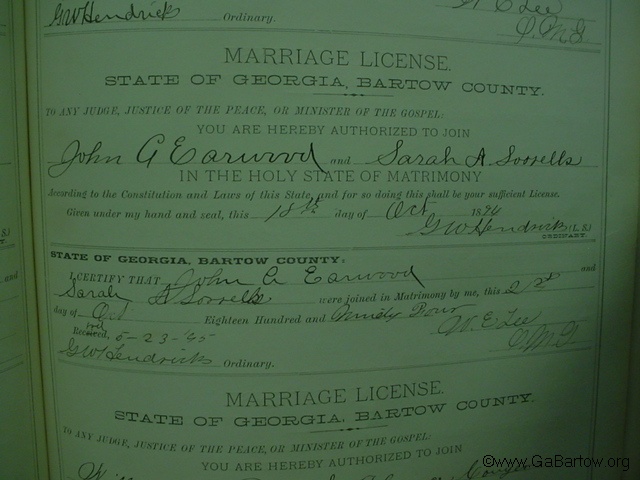 GW Hendricks Ordinary.
W E Lee
MARRIAGE LICENSE.
STATE OF GEORGIA, BARTOW COUNTY.
TO ANY JUDGE, JUSTICE OF THE PEACE, OR MINISTER OF THE GOSPEL:
YOU ARE HEREBY AUTHORIZED TO JOIN
John G Earwood and Sarah A Sorrells
IN THE HOLY STATE OF MATRIMONY
According to the Constitution and Laws of this State, and for so doing this shall be your sufficient License.
Given under my hand and seal, this 18th day of Oct 1894
GW Hendricks (L. S.)
ORDINARY.
STATE OF GEORGIA, BARTOW COUNTY:
I CERTIFY THAT John G Earwood and
Sarah A Sorrells were joined in Matrimony by me, this 22nd
day of Oct Eighteen Hundred and Ninety Four
Recorded, 5-23-95 W. E. Lee
GW Hendricks Ordinary.
MARRIAGE LICENSE.
STATE OF GEORGIA, BARTOW COUNTY.
TO ANY JUDGE, JUSTICE OF THE PEACE, OR MINISTER OF THE GOSPEL:
YOU ARE HEREBY AUTHORIZED TO JOIN
©www.GaBartow.org